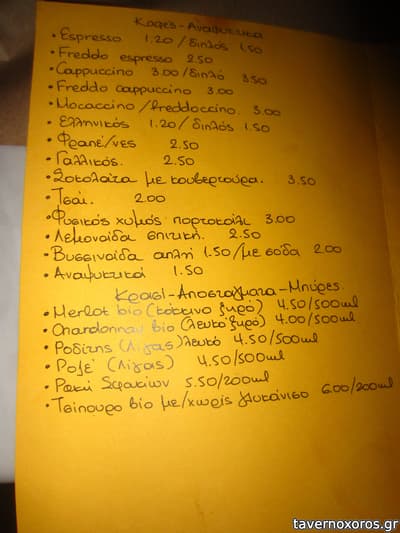 Καφές-Αναψυκτικά
• Espresso 1.20/διπλός 1.50
• Freddo espresso 2.50
• Cappuccino 3.00/διπλό 3.50
• Freddo cappuccino 3.00
• Mocaccino/freddoccino. 3.00
• Ελληνικός. 1.20/διπλός 1.50
• Φραπέ/νες 2.50
• Γαλλικός. 2.50
• Σοκολάτα με κουβερτούρα. 3.50
• Τσάι. 2.00
• Φυσικός χυμός πορτοκάλι 3.00
• Λεμονάδα σπιτική. 2.50
• Βυσσινάδα απλή 1.50/με σόδα 2.00
• Αναψυκτικά 1.50
Κρασί-Αποστάγματα-Μπύρες.
• Merlot bio (κόκκινο ξηρό) 4.50/500ml
• Chardonnay bio (λευκό ξηρό) 4.00/500ml
• Ροδίτης (Λίγας) λευκό 4.50/500ml
• Ροζέ (Λίγας) 4.50/500ml
• Ρακή Σφακίων 5.50/200ml
• Τσίπουρο bio με/χωρίς γλυκάνισο 6.00/200ml
tavernoxoros.gr